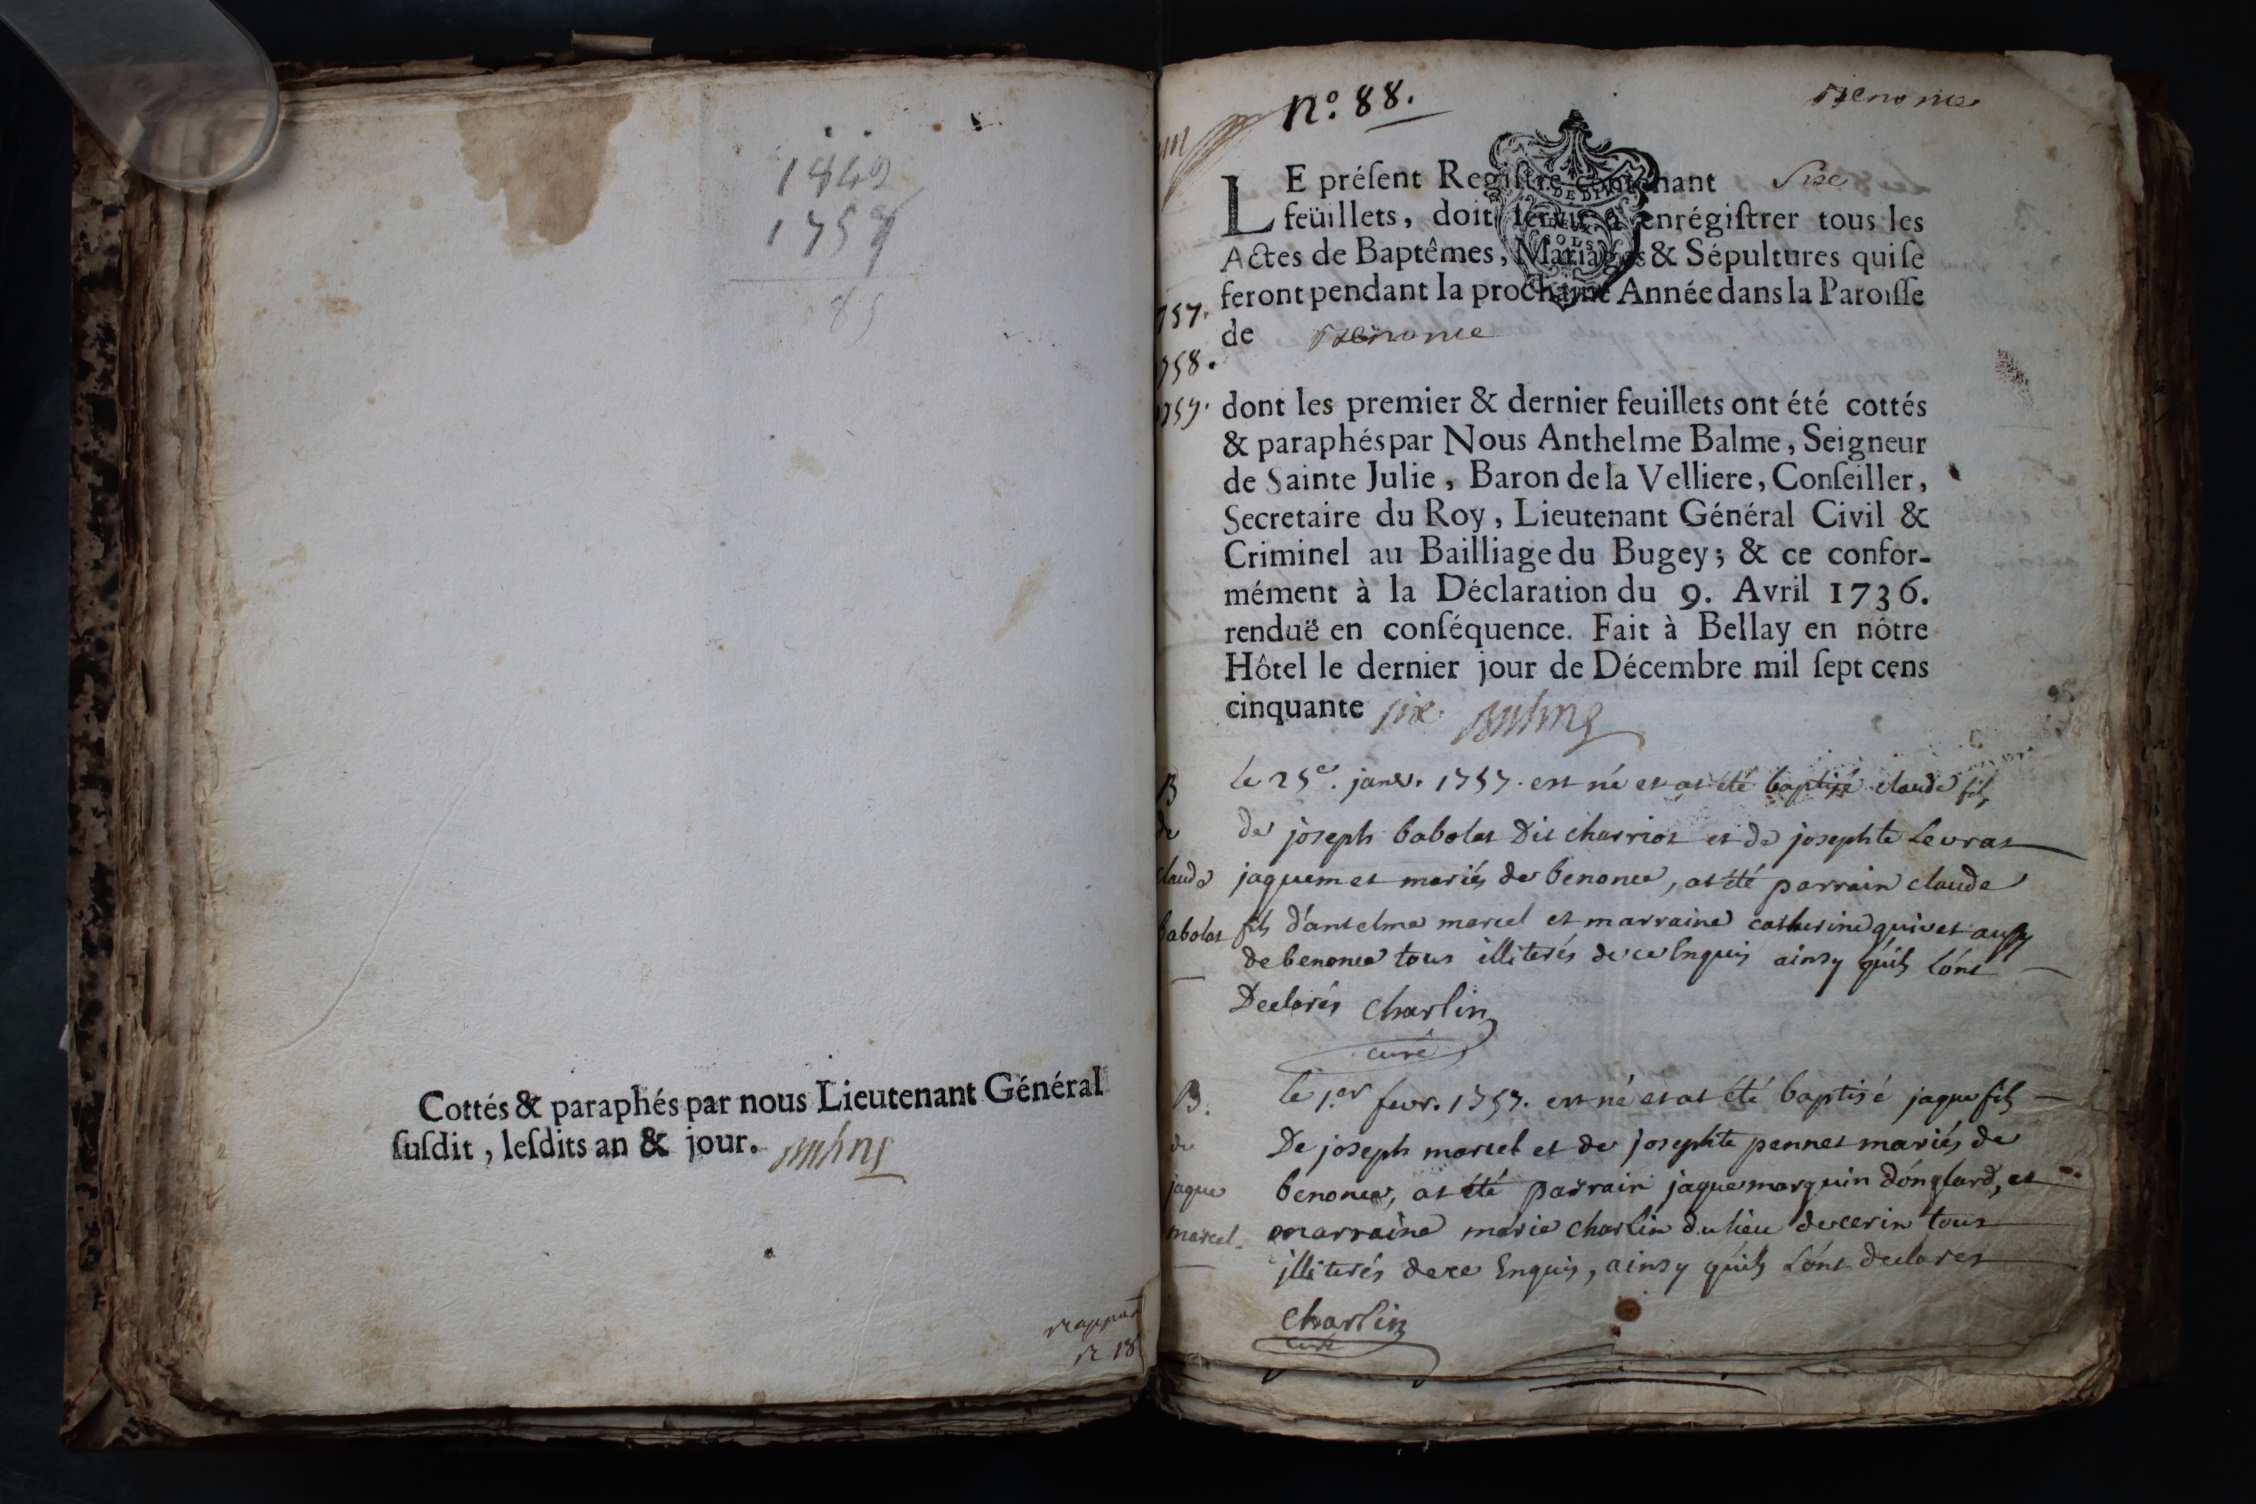 1842
1757
85
Cottés & paraphés par nous Lieutenant Général
ſuſdit, leſdits an & jour.
n.º 88.
Benonce
LE préſent Regiſtre contenant Six
feüillets, doit ſervir à enrégiſtrer tous les
Actes de Baptêmes, Mariages & Sépultures qui ſe
feront pendant la prochaine Année dans la Paroiſſe
de Benonce
1757.
1758.
1759.
dont les premier & dernier feuillets ont été cottés
& paraphés par Nous Anthelme Balme, Seigneur
de Sainte Julie, Baron de la Velliere, Conſeiller,
Secretaire du Roy, Lieutenant Général Civil &
Criminel au Bailliage du Bugey; & ce confor-
mément à la Déclaration du 9. Avril 1736.
renduë en conſéquence. Fait à Bellay en nôtre
Hôtel le dernier jour de Décembre mil ſept cens
cinquante six.
B
de
claude
babolat
le 25e. janv. 1757. est né et at été baptisé claude fils
de joseph babolat Dit charriot et de josephte Levrat
jaquemet mariés de benonce, at été parrain claude
fils d'antelme marcel et marraine catherine quivet aussy
de benonce tous illiterés de ce Enquis ainsy qu'ils l'ont
Declarés Charlin
curé
B.
de
jaque
marcel.
le 1.er fevr. 1757. est né et at été baptisé jaque fils
De joseph marcel et de josephte pennet mariés de
benonce, at été parrain jaque marquin d'onglard, et
marraine marie charlin du lieu de cerin tous
illiterés de ce Enquis, ainsy qu'ils l'ont declarés
Charlin
curé